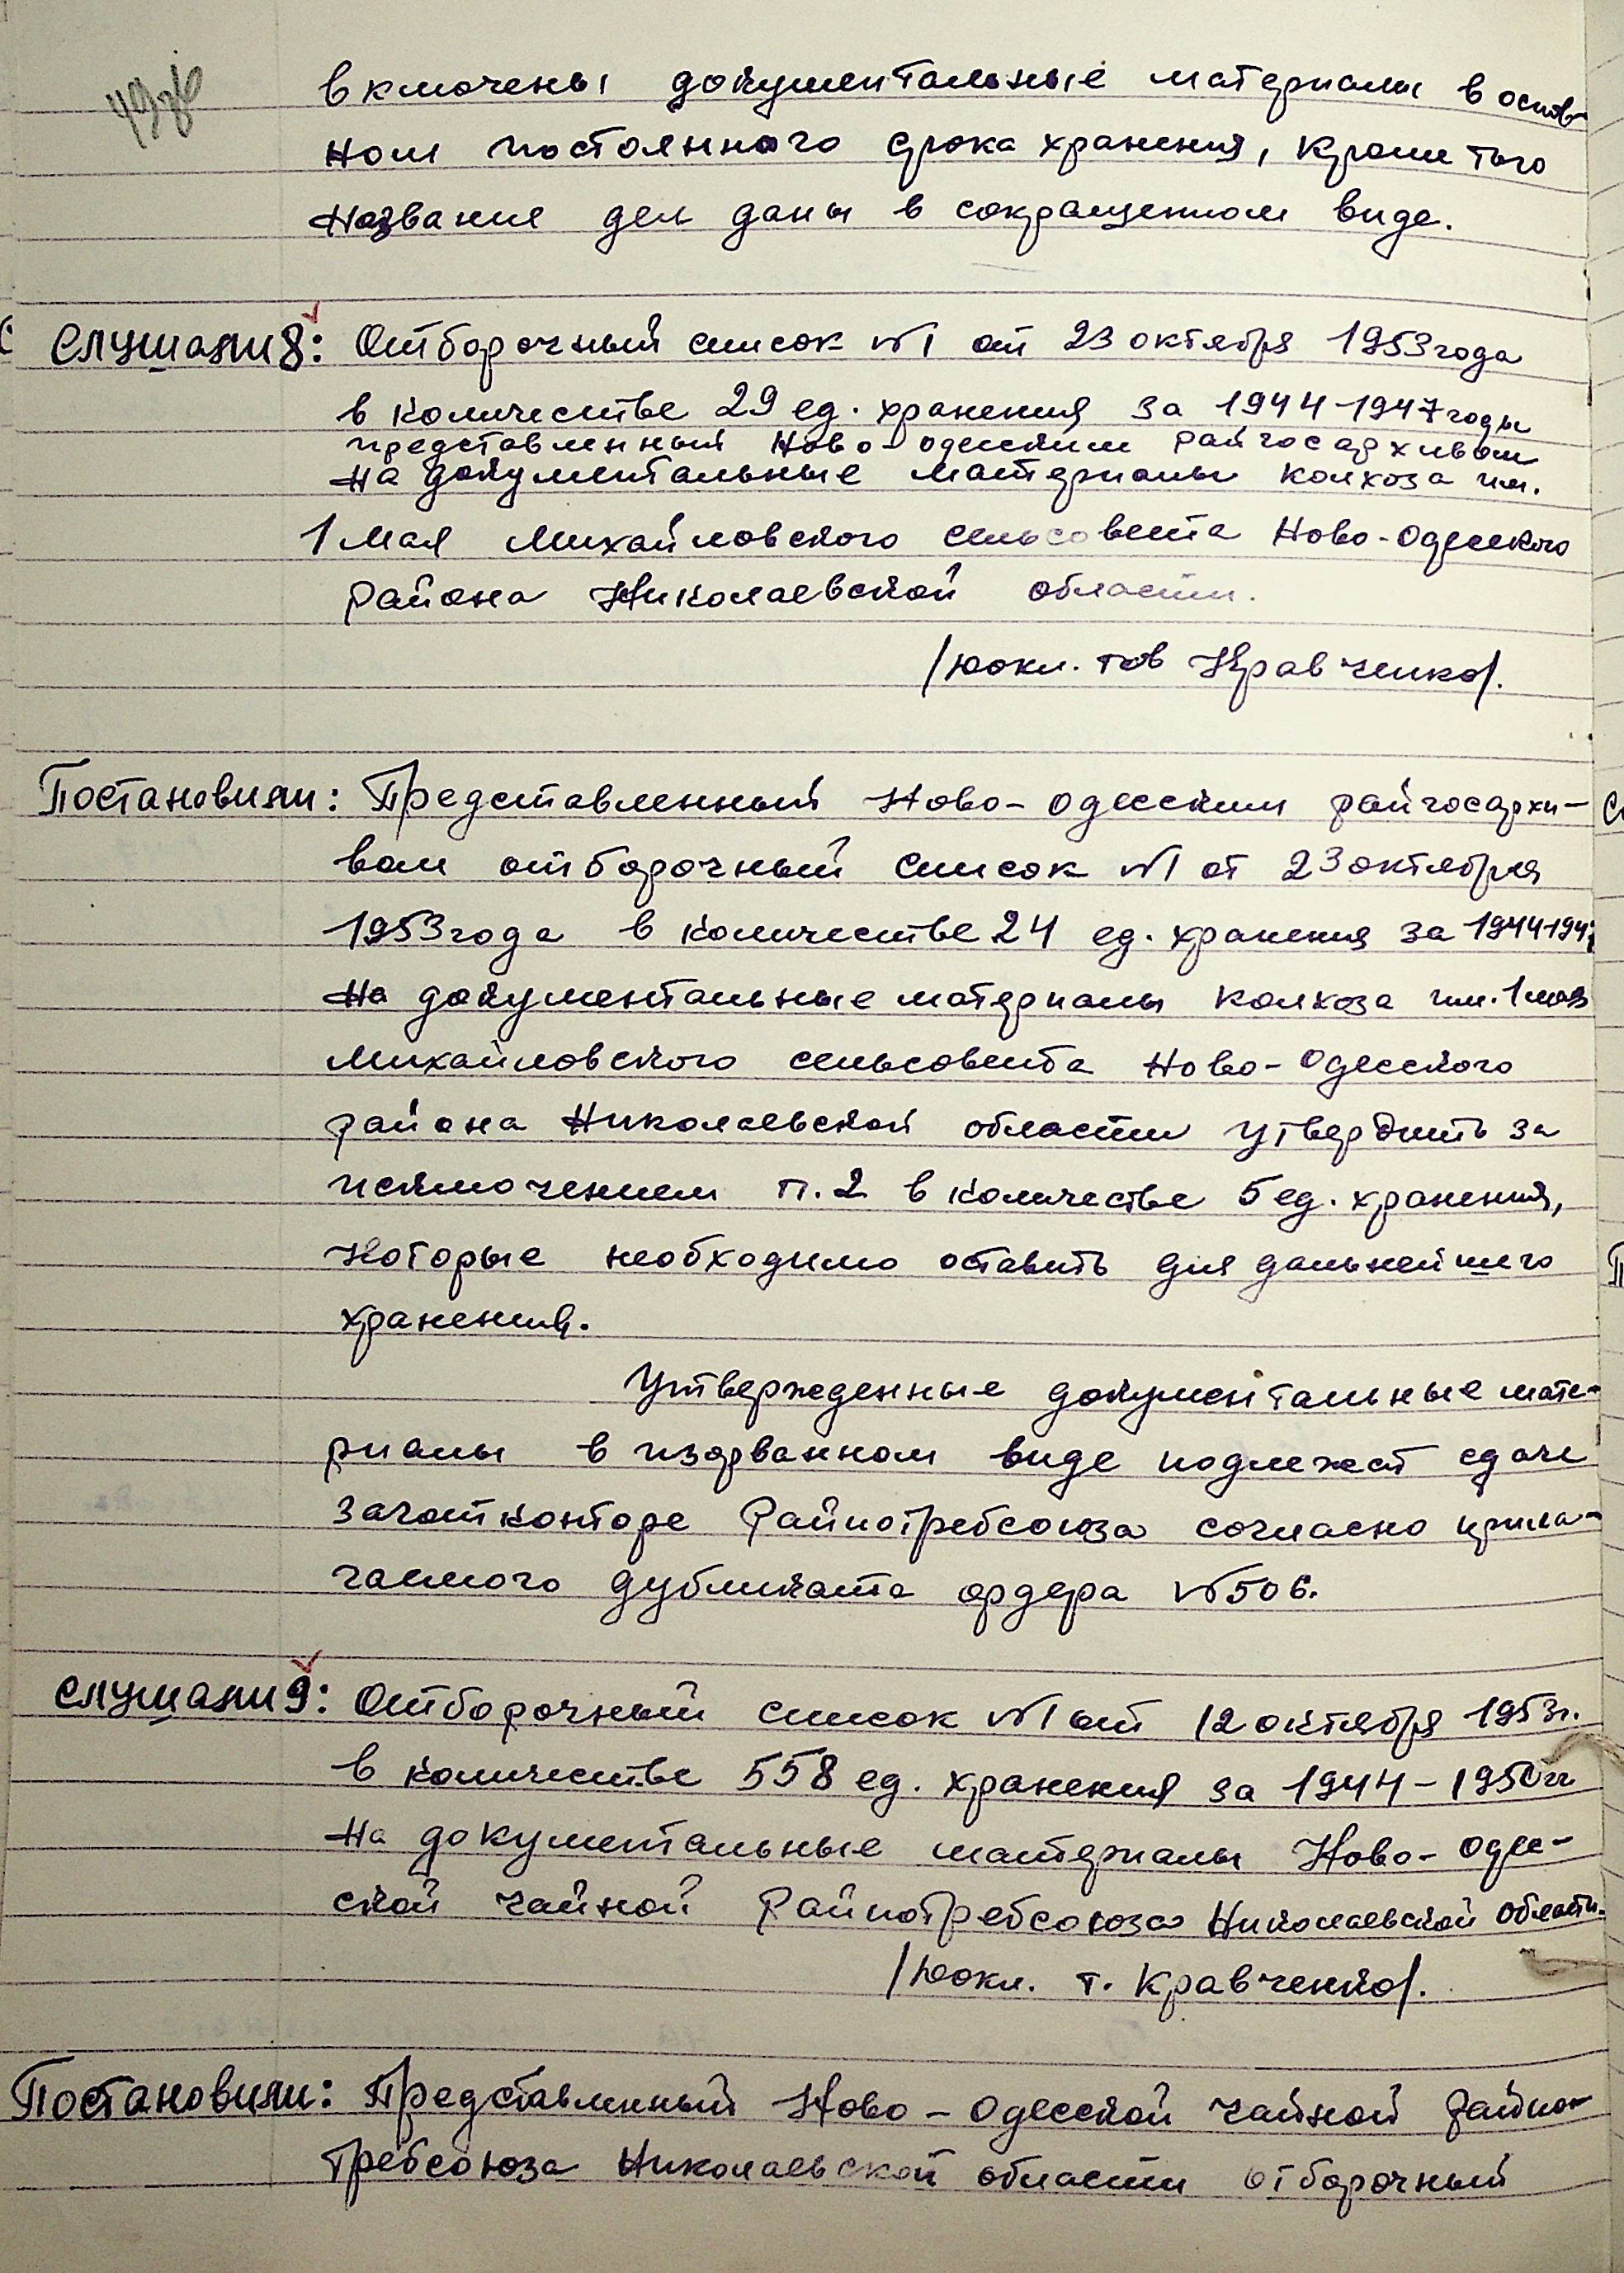 включены документальные материалы в основ-
ном постоянного срока хранения, кроме того
название дел даны в сокращенном виде.
Слушали 8: Отборочный список №1 от 23 октября 1953 года
в количестве 29 ед. хранения за 1944-1947 годы
представленный Ново-одесским райгосархивом
на документальные материалы колхоза им.
1 мая Михайловского сельсовета Ново-Одесского
района Николаевской области.
/докл. тов Кравченко/.
Постановили: Представленный Ново-Одесским райгосархи-
вом отборочный список №1 от 23 октября
1953 года в количестве 24 ед. хранения за 1944-194
на документальные материалы колхоза им. 1 мая
Михайловского сельсовета Ново-Одесского
района Николаевской области утвердить за
исключением п. 2 в количестве 5 ед. хранения,
которые необходимо оставить для дальнейшего
хранения.
Утвержденные документальные мате-
риалы в изорванном виде подлежат сдаче
заготконторе Райпотребсоюза согласно прила-
гаемого дубликата ордера №506.
Слушали 9: Отборочный список №1 от 12 октября 1953 г.
в количестве 558 ед. хранения за 1944-1950 гг
на документальные материалы Ново-Одес-
ской чайной Райпотребсоюза Николаевской области.
/докл. т. Кравченко/.
Постановили: Представленный Ново-Одесской чайной Райпо-
требсоюза Николаевской области отборочный